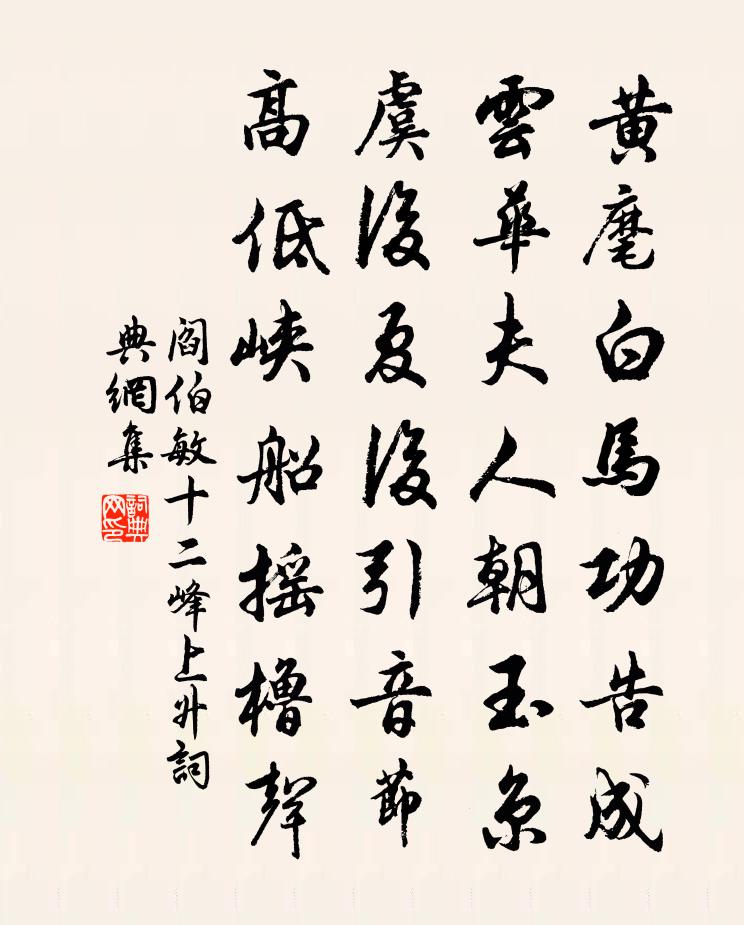 黃麾白馬功告成
雲華夫人朝玉京
虞後夏後引音節
高低峽船搖櫓聲
閻伯敏十二峰上升詞
典網集
詞典
网印